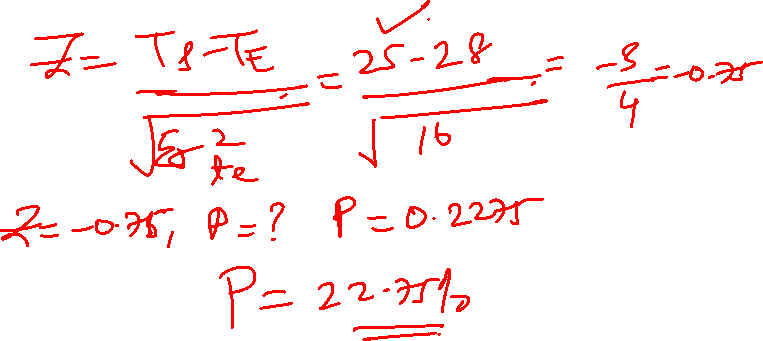 Z = (T_S - T_E) / √(Σσ²_te) = (25 - 28) / √16 = -3/4 = -0.75
Z = -0.75, P = ? P = 0.2275
P = 22.75%